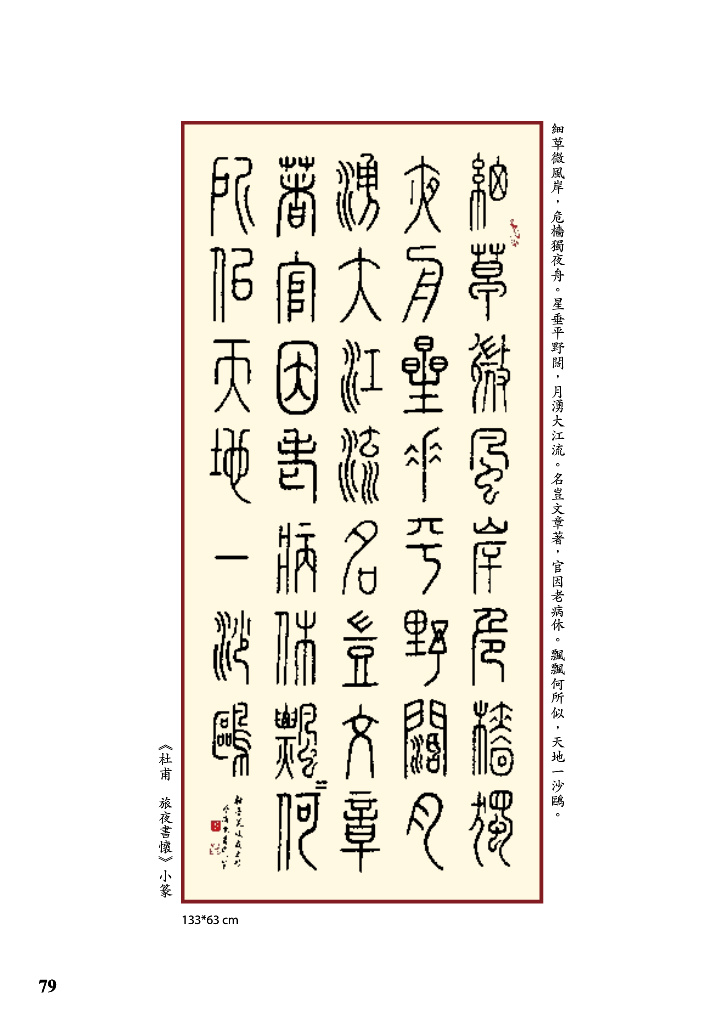 細草微風岸，危檣獨夜舟。星垂平野闊，月湧大江流。名豈文章著，官因老病休。飄飄何所似，天地一沙鷗。
細草微風岸危檣獨
夜舟星垂平野闊月
湧大江流名豈文章
著官因老病休飄〻何
所似天地一沙鷗
《杜甫　旅夜書懷》小篆
133*63 cm
79